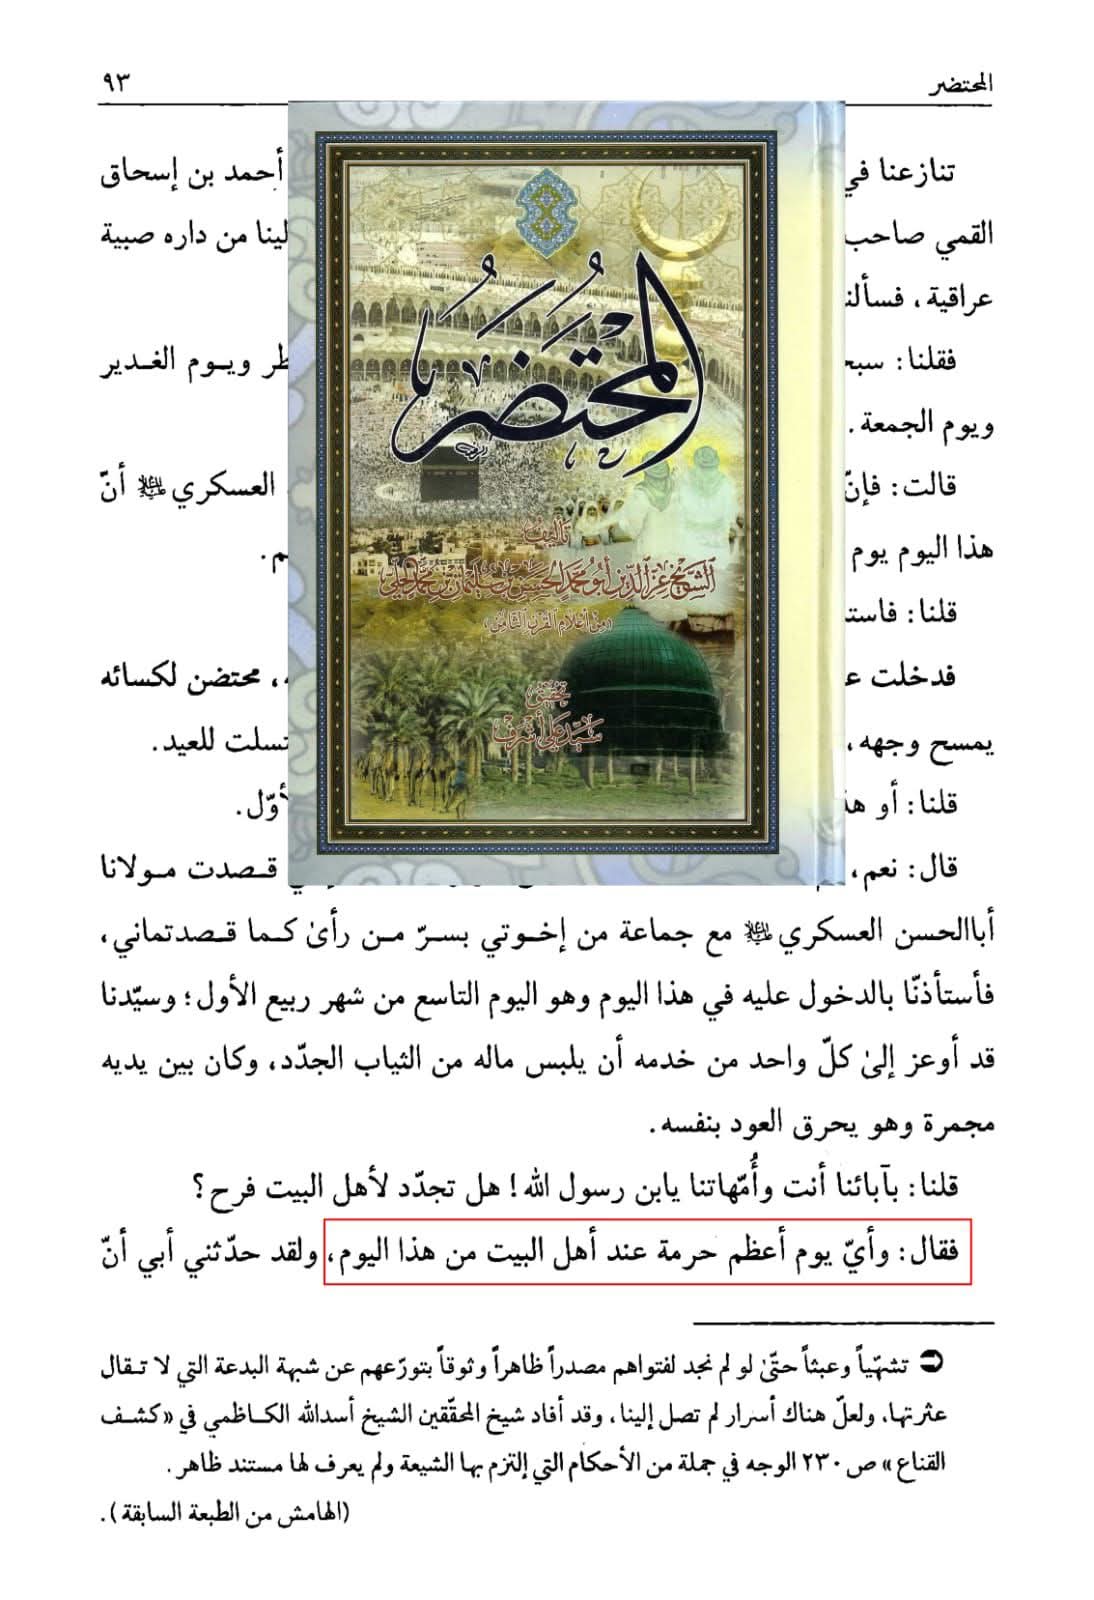 المحتضر ٩٣
تنازعنا في أحمد بن إسحاق
القمي صاحب لينا من داره صبية
عراقية، فسألنـ
فقلنا: سبحـ ـطر ويـوم الغـدير
ويوم الجمعة.
قالت: فإنّ العسكري عليه السلام أنّ
هذا اليوم يوم ـم.
قلنا: فاستـ
فدخلت عـ ـه، محتضن لكسائه
يمسح وجهه، ـتسلت للعيد.
قلنا: أو هذ ـأوّل.
قال: نعم، قـصدت مـولانا
أباالحسن العسكري عليه السلام مع جماعة من إخـوتي بسـرّ مـن رأىٰ كـما قـصدتماني،
فأستأذنّا بالدخول عليه في هذا اليوم وهو اليوم التاسع من شهر ربيع الأول؛ وسيّدنا
قد أوعز إلىٰ كلّ واحد من خدمه أن يلبس ماله من الثياب الجدّد، وكان بين يديه
مجمرة وهو يحرق العود بنفسه.
قلنا: بآبائنا أنت وأُمّهاتنا يابن رسول الله! هل تجدّد لأهل البيت فرح؟
فقال: وأيّ يوم أعظم حرمة عند أهل البيت من هذا اليوم، ولقد حدّثني أبي أنّ
تشهّياً وعبثاً حتّىٰ لو لم نجد لفتواهم مصدراً ظاهراً وثوقاً بتورّعهم عن شبهة البدعة التي لا تـقال
عثرتها، ولعلّ هناك أسرار لم تصل إلينا، وقد أفاد شيخ المحقّقين الشيخ أسدالله الكـاظمي في «كشـف
القناع» ص ٢٣٠ الوجه في جملة من الأحكام التي إلتزم بها الشيعة ولم يعرف لها مستند ظاهر.
(الهامش من الطبعة السابقة).
المحتضر
تأليف
الشيخ عز الدين أبو محمد الحسن بن سليمان بن محمد الحلي
(من أعلام القرن الثامن)
تحقيق
سيد علي أشرف